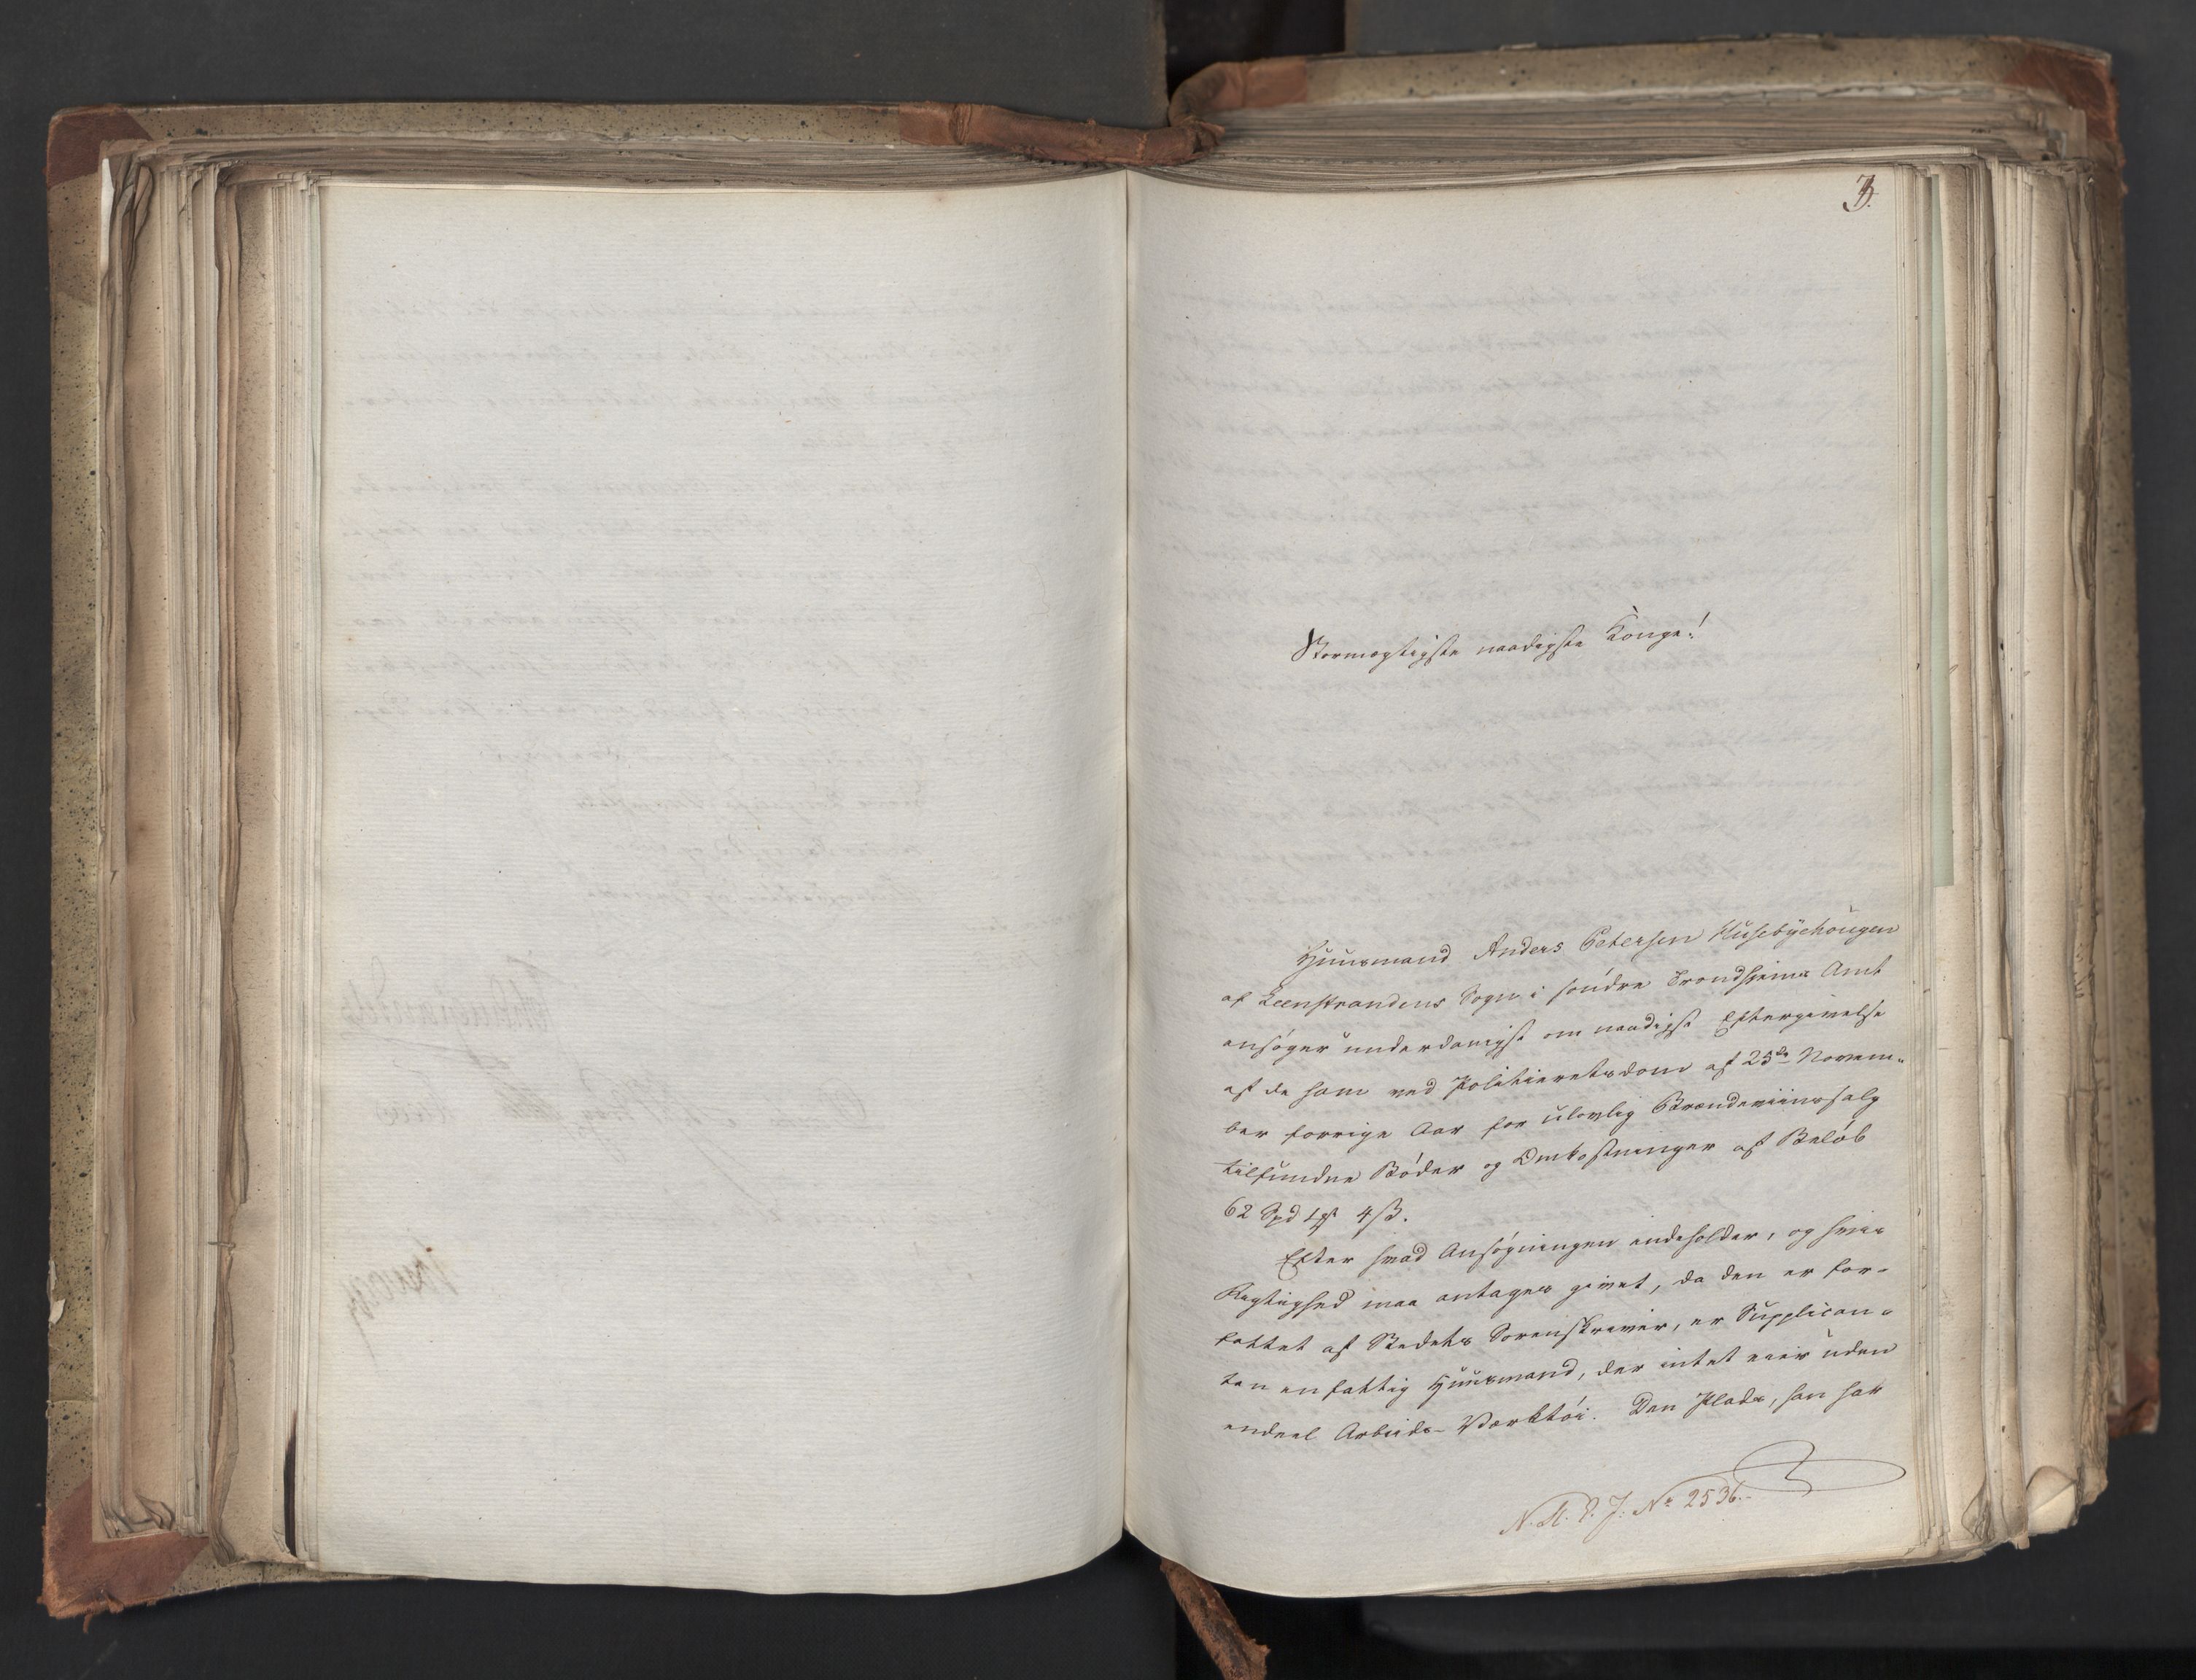 Stormægtigste naadigste Konge!
Huusmand Anders Petersen Husebÿehougen
af Leenstrandens Sogn i søndre Trondhjems Amt
ansøger underdanigst om naadigst Eftergivelse
af de ham ved Politieretsdom af 25de Novem-
ber forrige Aar for ulovlig Brændeviinssalg
tilfundne Bøder og Omkostninger af Beløb
62 Spd 4 ß.
Efter hvad Ansøgningen indeholder, og hvis
Rigtighed maa antages givet, da den er for-
fattet af Stedets Sorenskriver, er Supplican-
ten en fattig Huusmand, der intet eier uden
endeel Arbeids-Værktøi. Den Plads, han har
N. St. E. J. No 2536.